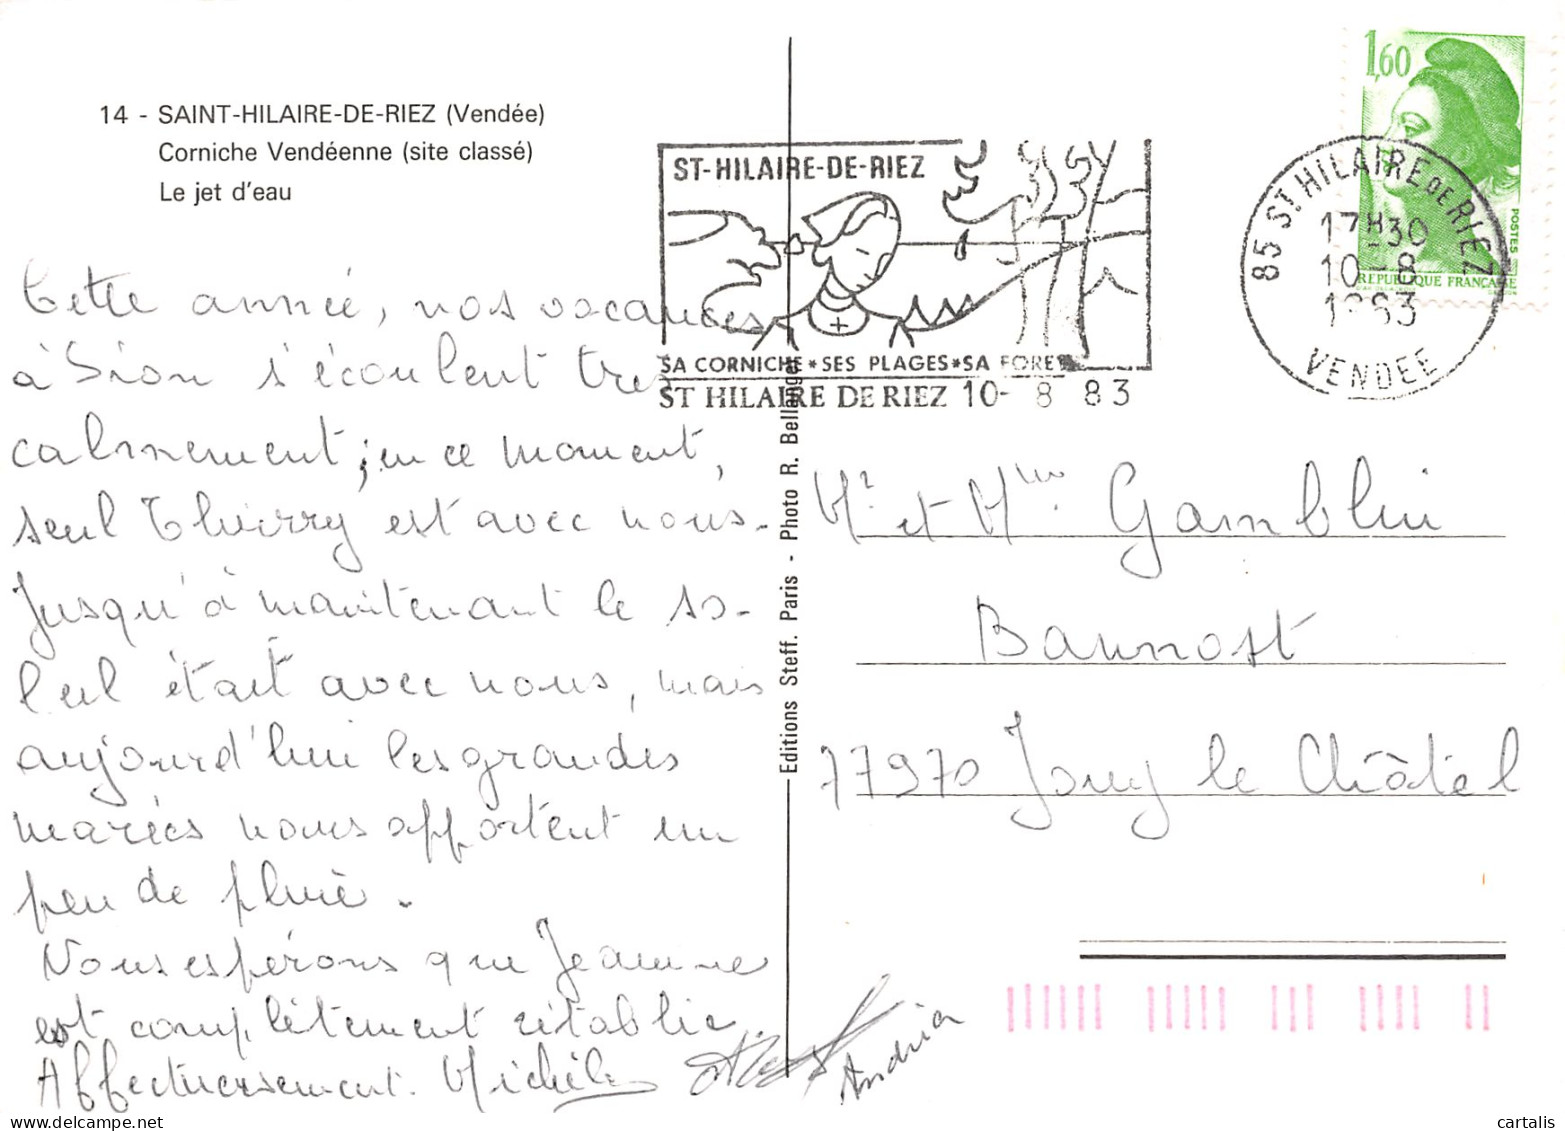 14 - SAINT-HILAIRE-DE-RIEZ (Vendée)
Corniche Vendéenne (site classé)
Le jet d'eau
Cette année, nos vacances
à Sion s'écoulent très
calmement; en ce moment,
seul Thierry est avec nous.
Jusqu'à maintenant le so-
leil était avec nous, mais
aujourd'hui les grandes
marées nous apportent un
peu de pluie.
Nous espérons que Jeanne
est complètement rétablie
Affectueusement. Michèle
Andria
Editions Steff. Paris - Photo R. Bellanger
ST-HILAIRE-DE-RIEZ
SA CORNICHE*SES PLAGES*SA FORET
ST HILAIRE DE RIEZ 10- 8 83
1,60
POSTES
REPUBLIQUE FRANÇAISE
85 ST HILAIRE DE RIEZ
17H30
10-8
1983
VENDEE
Mr et Mme Gamblin
Bannost
77970 Jouy le Châtel
cartalis